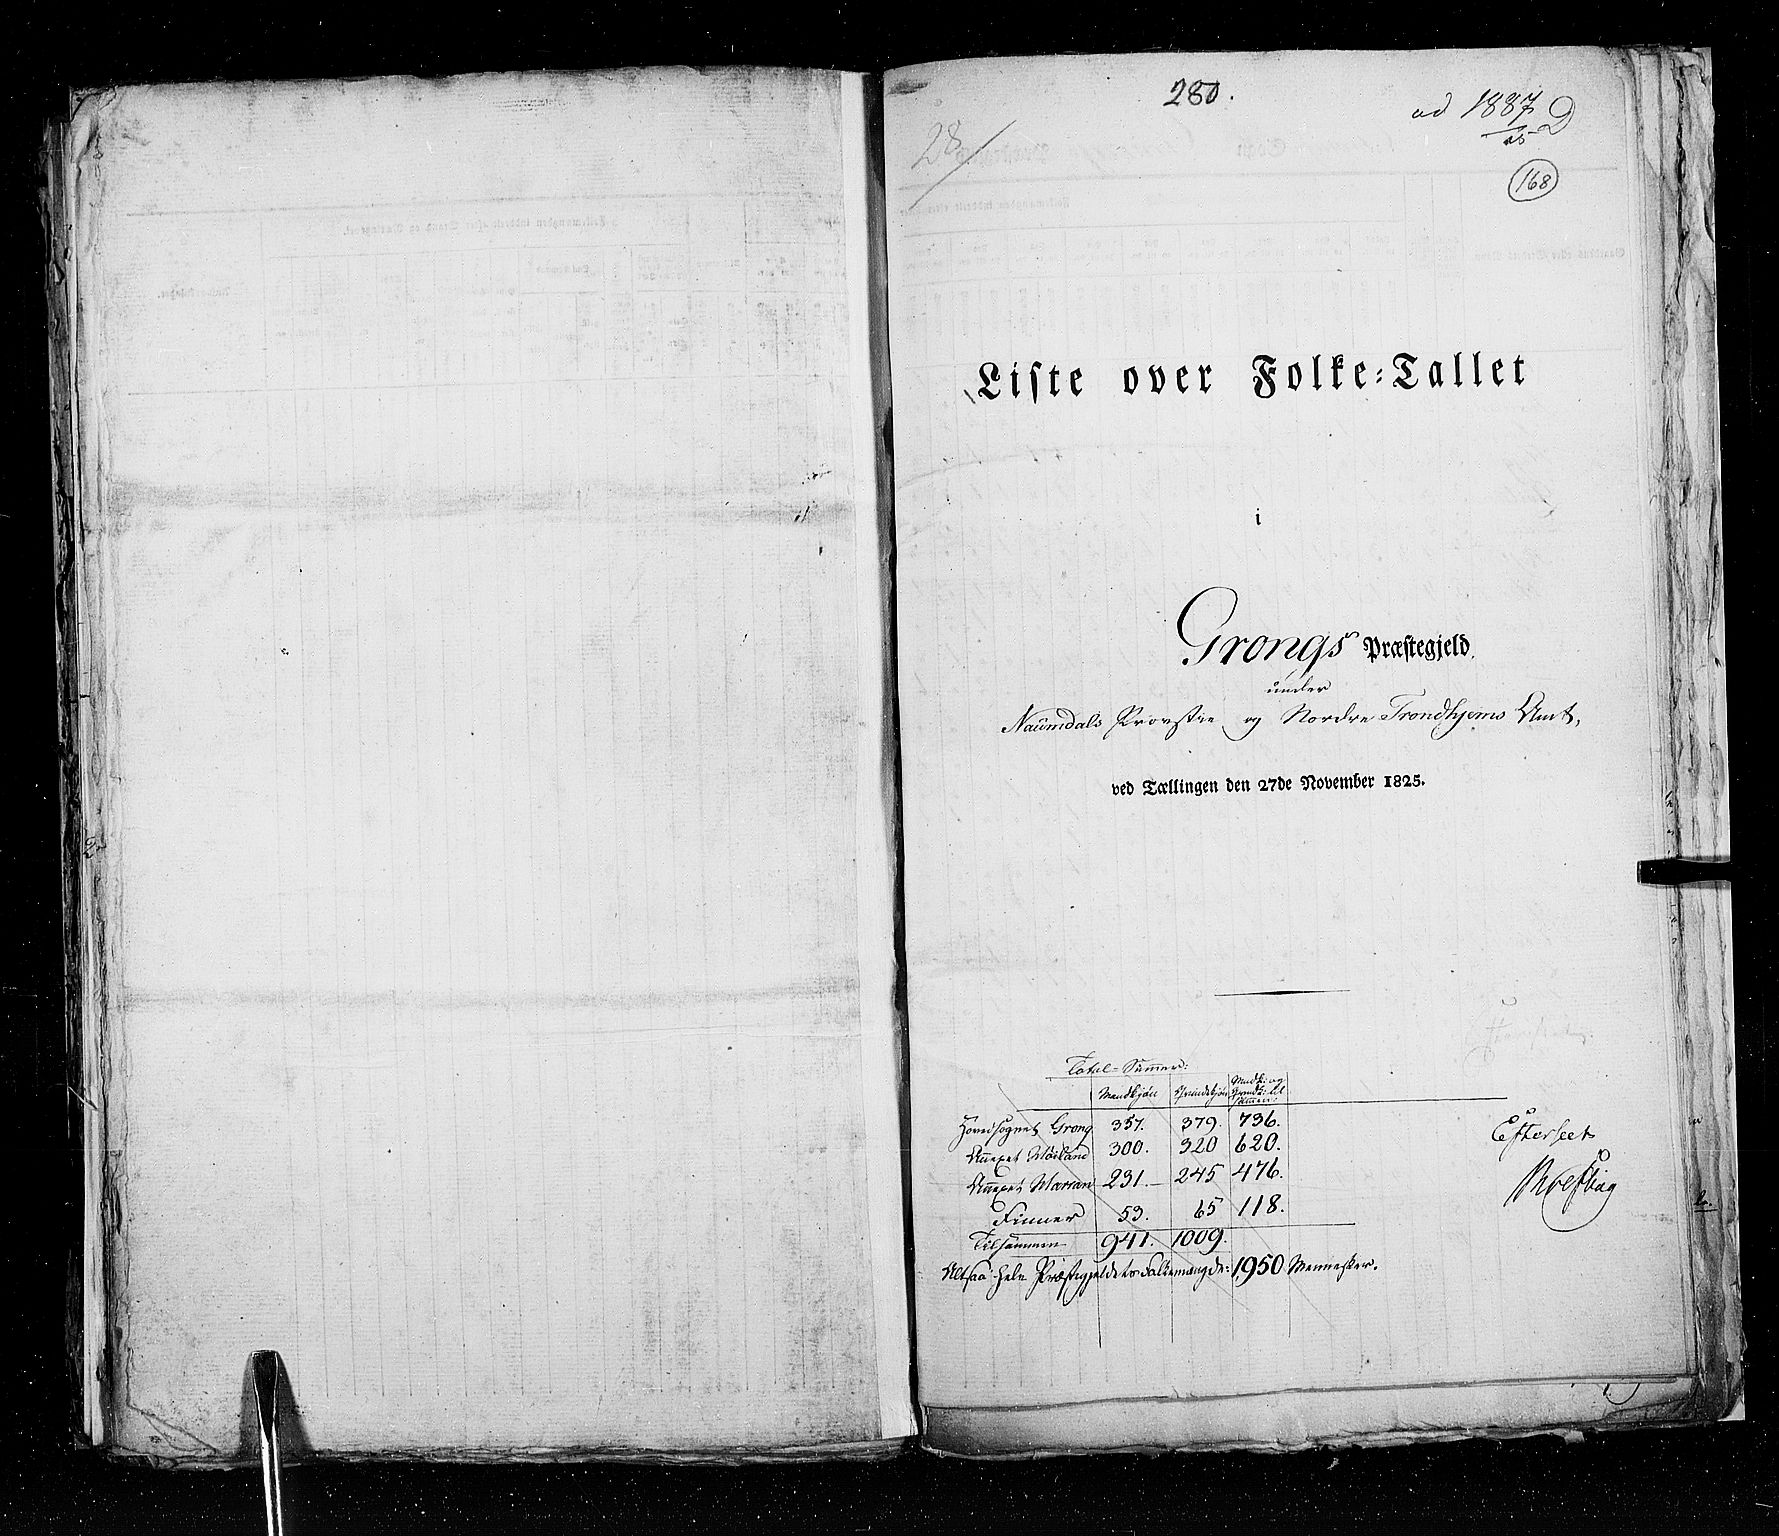 280.
ad 1887/25 D
28/
168
Liste over Folke-Tallet
i
Grongs Præstegjeld
under
Naumdals Provstie og Nordre Trondhjems Amt,
ved Tællingen den 27de November 1825.
Total-Summer:
Mandkjøn Qvindekjøn Mandk: og Qvindk: til sammen:
Hovedsognet Grong 357. 379. 736.
Annexet 300. 320 620.
Annexet 231.— 245 476.
Finner 53. 65 118.
Tilsammen 941. 1009.
Altsaa hele Præstegjeldets Folkemængde: 1950 Mennesker.
Efterseet